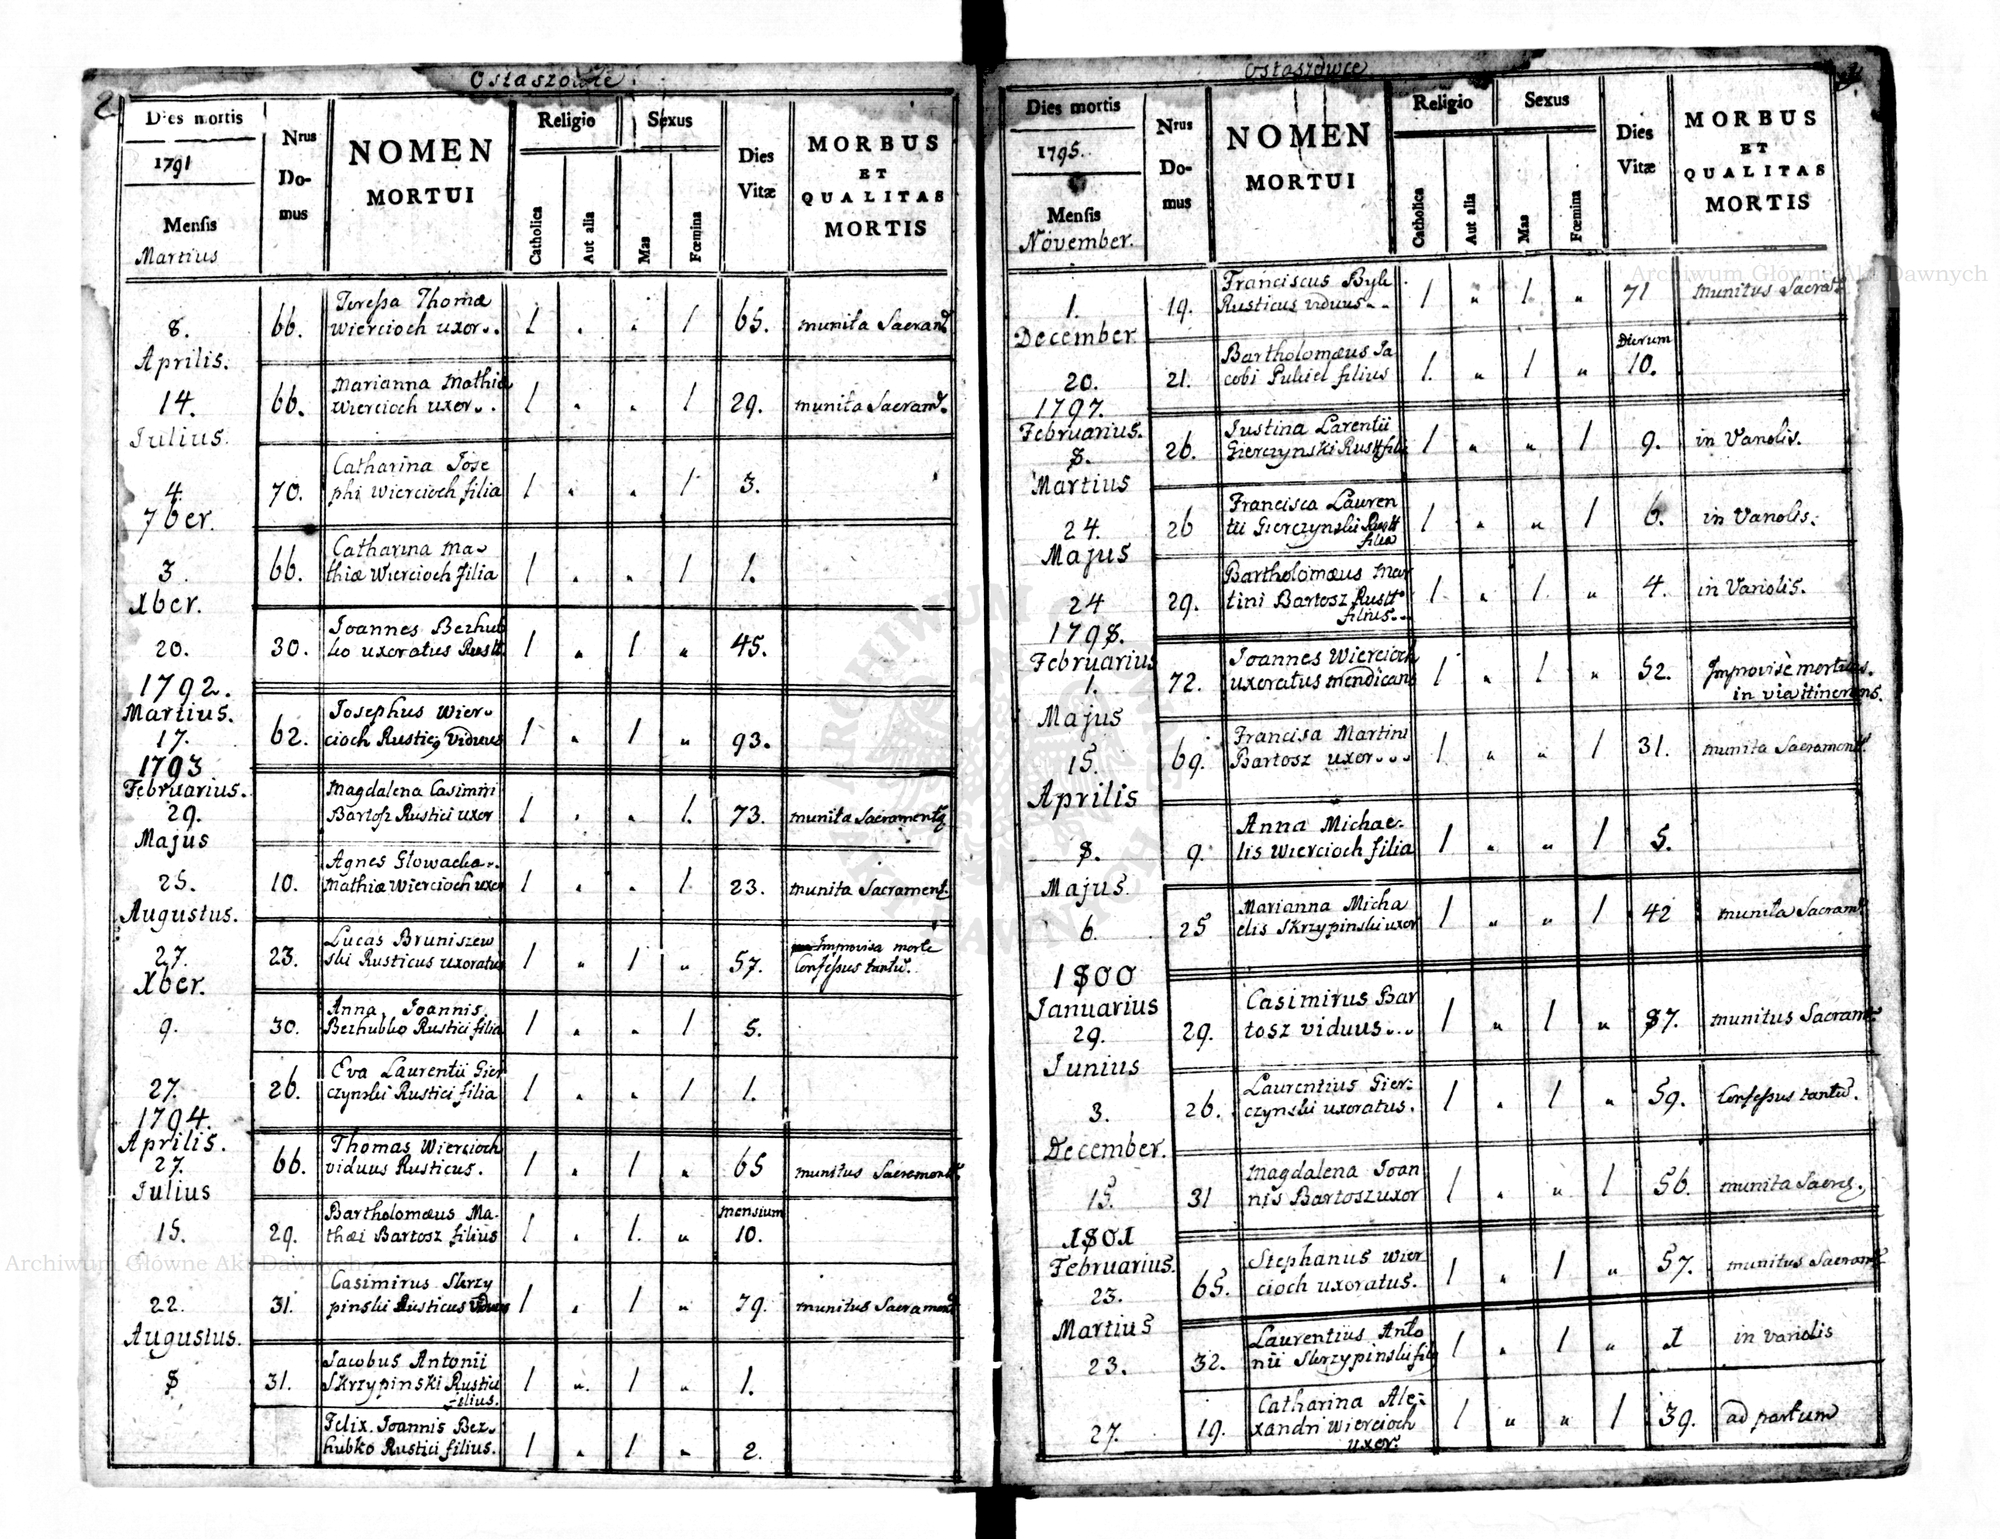 2.
Ostaszowce
Dies mortis
1791
Mensis
Martius
Nrus Domus
NOMEN MORTUI
Religio
Catholica
Aut alia
Sexus
Mas
Fœmina
Dies Vitæ
MORBUS ET QUALITAS MORTIS
8. 66. Teressa Thomæ
Wiercioch uxor. 1 „ „ 1 65. munita Sacram
Aprilis.
14. 66. Marianna Mathiæ
Wiercioch uxor. 1 „ „ 1 29. munita Sacram.
Julius.
4. 70. Catharina Jose
phi Wiercioch filia 1 „ „ 1 3.
7ber.
3. 66. Catharina Ma-
thiæ Wiercioch filia 1 „ „ 1 1.
Xber.
20. 30. Joannes Bezhub
ko uxoratus Rustt. 1 „ 1 „ 45.
1792.
Martius.
17. 62. Josephus Wier-
cioch Rustic9 Viduus 1 „ 1 „ 93.
1793
Februarius.
29. Magdalena Casimiri
Bartosz Rustici uxor 1 „ „ 1. 73. munita Sacramentis
Majus
25. 10. Agnes Głowacka
Mathiæ Wiercioch uxor 1 „ „ 1 23. munita Sacrament.
Augustus.
27. 23. Lucas Bruniszew
ski Rusticus uxoratus 1 „ 1 „ 57. Improvisa morte
Confessus tantu.
Xber.
9. 30. Anna Joannis
Bezhubko Rustici filia 1 „ „ 1 5.
27. 26. Eva Laurentii Gier
czynski Rustici filia 1 „ „ 1 1.
1794.
Aprilis.
27. 66. Thomas Wiercioch
viduus Rusticus. 1 „ 1 „ 65 munitus Sacrament
Julius
15. 29. Bartholomæus Ma-
thæi Bartosz filius 1 „ 1. „ mensium
10.
22. 31. Casimirus Skrzy
pinski Rusticus viduus 1 „ 1 „ 79. munitus Sacrament
Augustus.
8 31. Jacobus Antonii
Skrzypinski Rustici
filius. 1 „ 1 „ 1.
Felix Joannis Bez-
hubko Rustici filius. 1 „ 1 „ 2.
Ostaszowce
3.
Dies mortis
1795.
Mensis
November.
Nrus Domus
NOMEN MORTUI
Religio
Catholica
Aut alia
Sexus
Mas
Fœmina
Dies Vitæ
MORBUS ET QUALITAS MORTIS
1. 19. Franciscus Byli
Rusticus viduus 1 „ 1 „ 71 munitus Sacra
December.
20. 21. Bartholomæus Ja
cobi Pukiel filius 1. „ 1 „ Dierum
10.
1797.
Februarius.
8. 26. Justina Larentii
Gierczynski Rustt filia 1 „ „ 1 9. in Variolis.
Martius
24. 26 Francisca Lauren
tii Gierczynski Rustt
filia 1 „ „ 1 6. in Variolis.
Majus
24 29. Bartholomæus Mar
tini Bartosz Rustt
filius 1 „ 1 „ 4. in Variolis.
1798.
Februarius
1. 72. Joannes Wiercioch
uxoratus mendicans 1 „ 1 „ 52. Improvisè mortuus.
in via itinerans.
Majus
15. 69. Francisa Martini
Bartosz uxor 1 „ „ 1 31. munita Sacrament
Aprilis
8. 9. Anna Michae-
lis Wiercioch filia 1 „ „ 1 5.
Majus.
6. 25 Marianna Micha
elis Skrzypinski uxor 1 „ „ 1 42 munita Sacram
1800
Januarius
29. 29. Casimirus Bar
tosz viduus 1 „ 1 „ 87. munitus Sacram
Junius
3. 26. Laurentius Gier-
czynski uxoratus. 1 „ 1 „ 59. Confessus tantu.
December.
15. 31 Magdalena Joan
nis Bartosz uxor 1 „ „ 1 56. munita Sacra.
1801
Februarius.
23. 65. Stephanus Wier
cioch uxoratus. 1 „ 1 „ 57. munitus Sacram
Martius
23. 32. Laurentius Anto
nii Skrzypinski fili9 1 „ 1 „ 1 in variolis
27. 19. Catharina Ale-
xandri Wiercioch
uxor. 1 „ „ 1 39. ad partum
Archiwum Główne Akt Dawnych
Archiwum Główne Akt Dawnych
ARCHIWUM GŁÓWNE AKT DAWNYCH